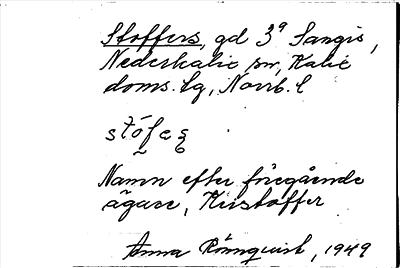 Stoffers, gd 3ᵃ Sangis,
Nederkalix sn, Kalix
doms. lg, Norrb. l
stófeʂ
Namn efter föregående
ägare, Kristoffer
Anna Rönnquist, 1949